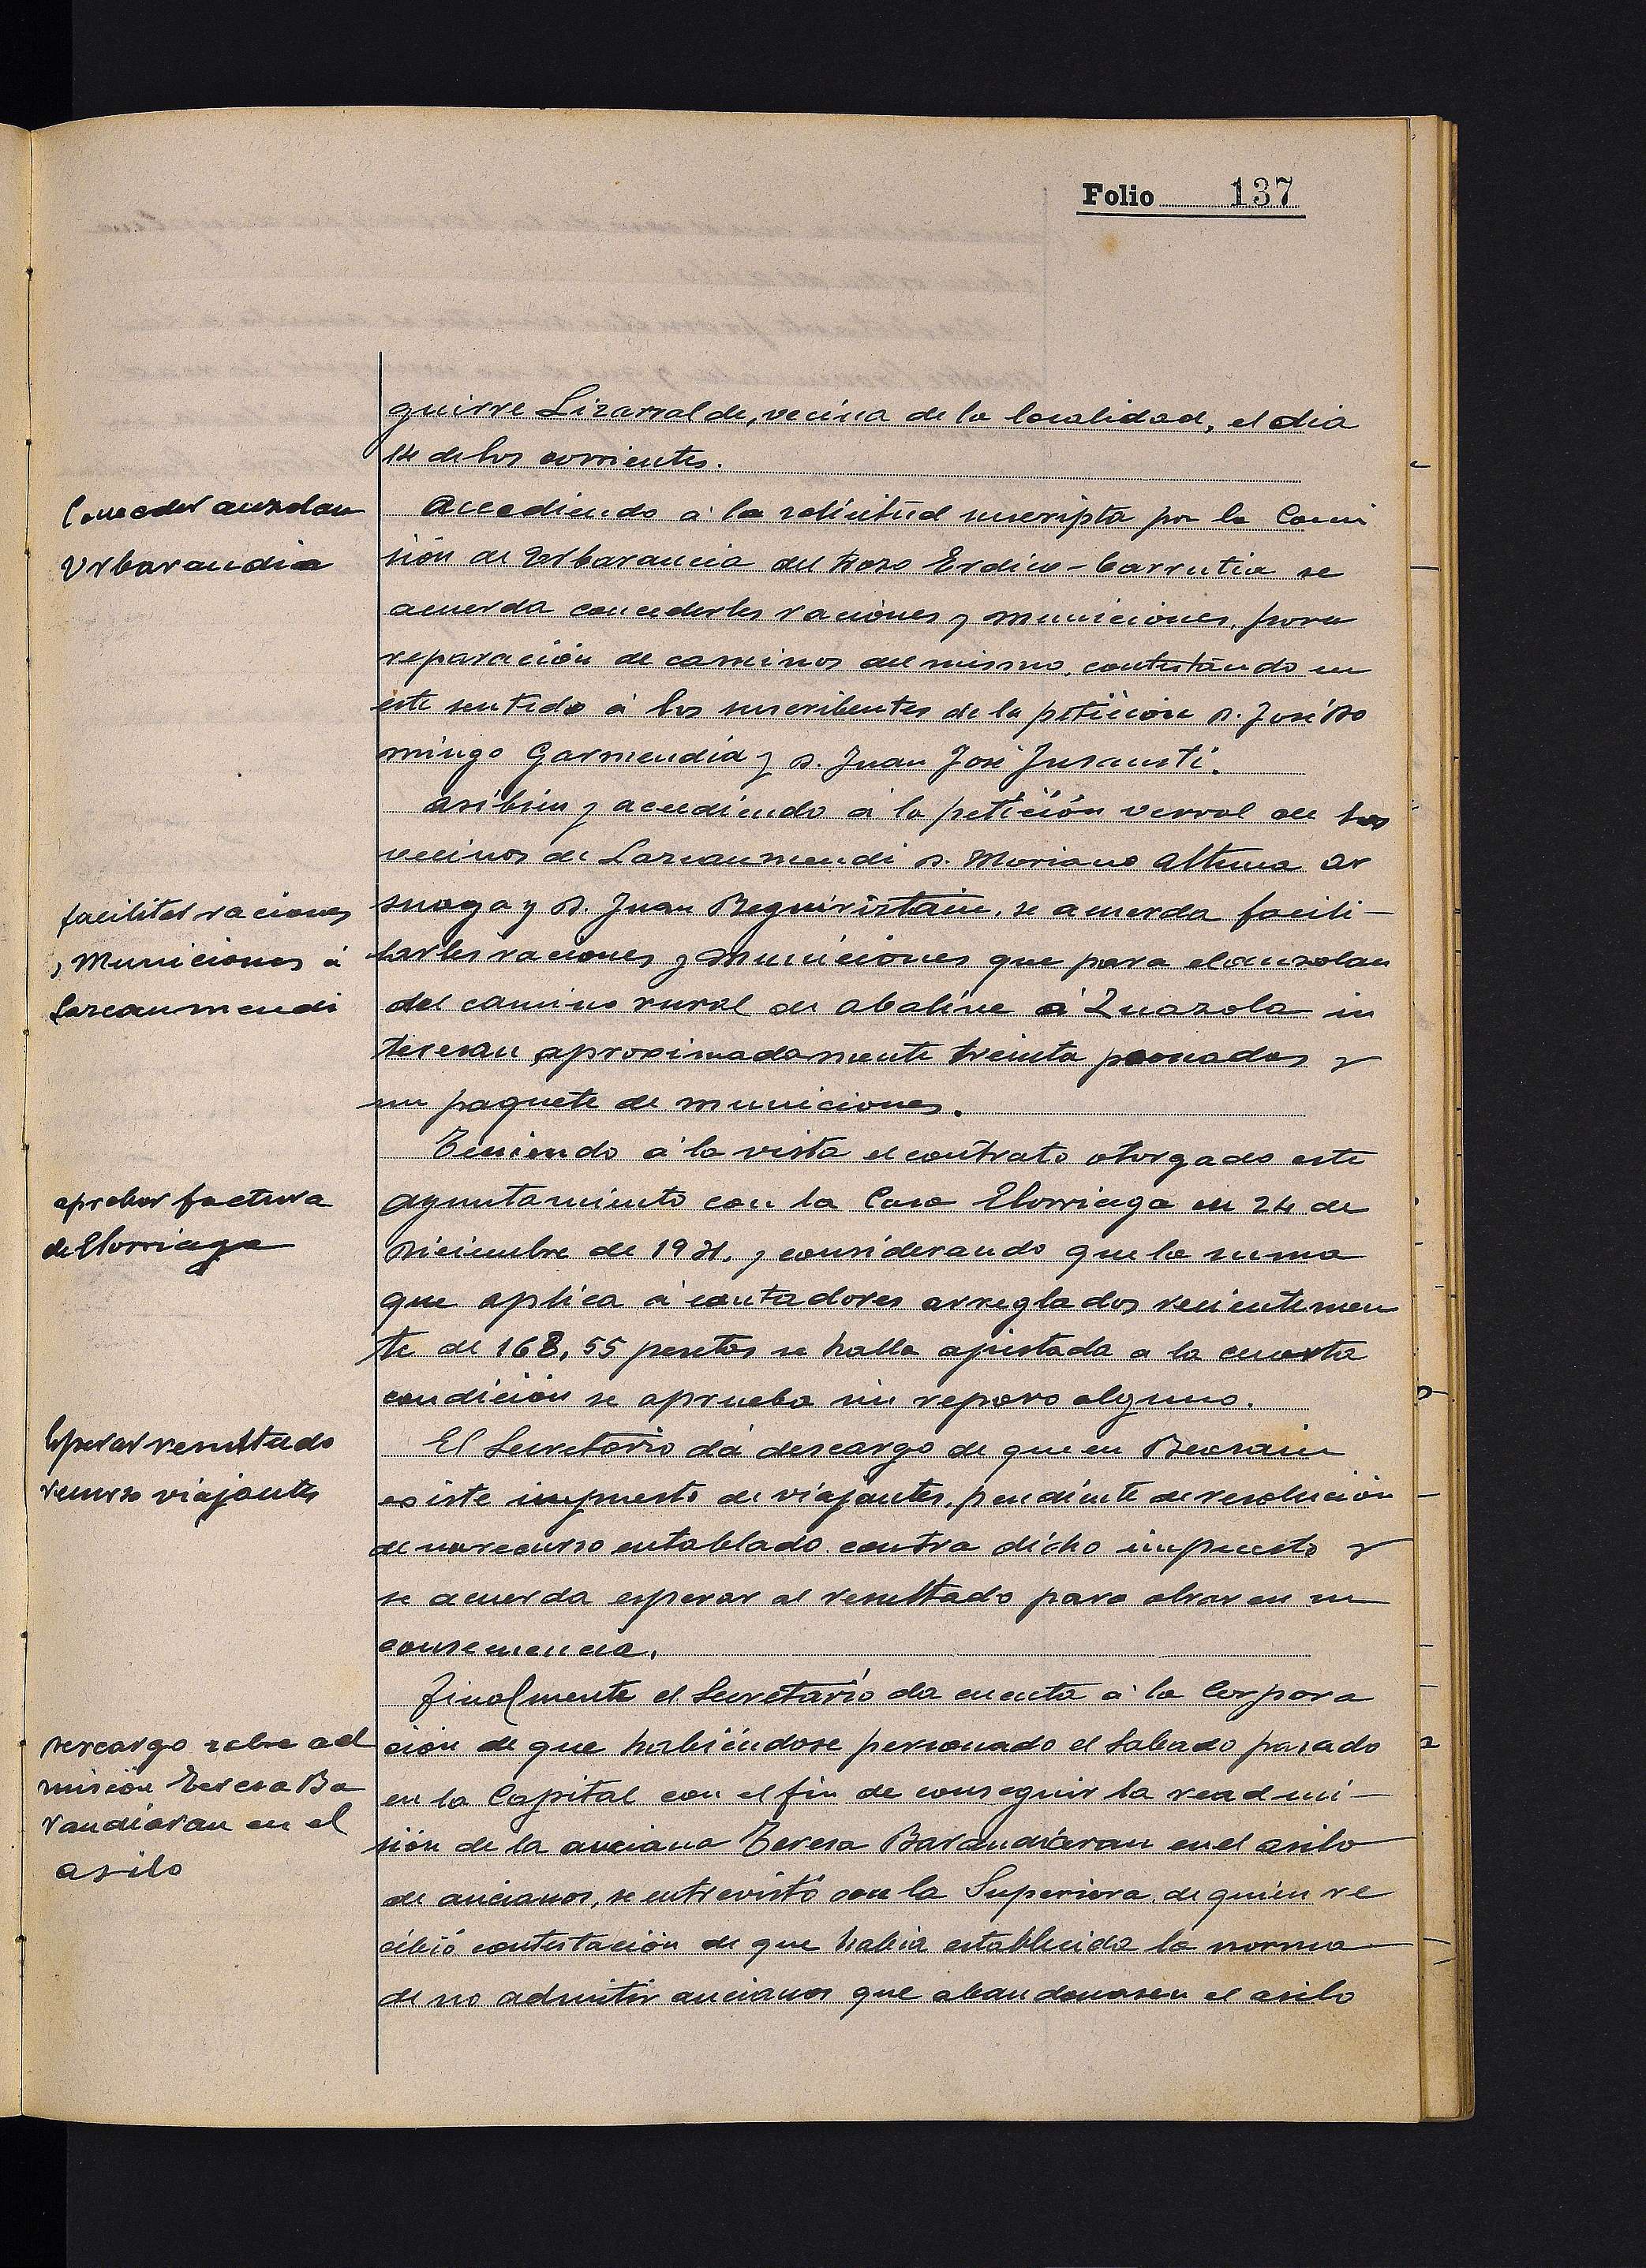 Folio 137
guirre Lizarralde, vecina de la localidad, el dia
14 de los corrientes.
Conceder auzolan
Urbarandia
Accediendo á la solicitud suscripta por la Comi
sión de Urbarancia del Barrio Erdico-Garrutia se
acuerda concederles raciones y municiones, para
reparación de caminos del mismo, contestando en
este sentido á los suscribentes de la petición D. José Do
mingo Garmendia y D. Juan José Insausti.
Asibien y accediendo á la petición verval de los
vecinos de Lazcaumendi D. Mariano Altuna Ar
suaga y D. Juan Beguiristain, se acuerda facili-
facilitar raciones
y Municiones á
Lazcaumendi
tarles raciones y municiones que para el auzolan
del camino rural de Abaline á Zuazola in
teresan aproximadamente treinta peonadas y
un paquete de municiones.
Teniendo á la vista el contrato otorgado este
aprobar factura
de Elorriaga
Ayuntamiento con la Casa Elorriaga en 24 de
Diciembre de 1931, y considerando que la suma
que aplica á contadores arreglados recientemen
te de 168,55 pesetas se halla ajustada a la cuarta
condición se aprueba sin reparo alguno.
Esperar resultado
recurso viajantes
El Secretario dá descargo de que en Beasain
existe impuesto de viajantes, pendiente de resolución
de un recurso entablado contra dicho impuesto y
se acuerda esperar al resultado para obrar en su
consecuencia.
Finalmente el Secretario da cuenta á la Corpora
Descargo sobre ad
misión Teresa Ba
randiaran en el
asilo
ción de que habiéndose personado el Sabado pasado
en la Capital con el fin de conseguir la readmi-
sión de la anciana Teresa Barandiaran en el asilo
de ancianos, se entrevistó con la Superiora de quien re
cibió contestación de que habia establecida la norma
de no admitir ancianos que abandonasen el asilo